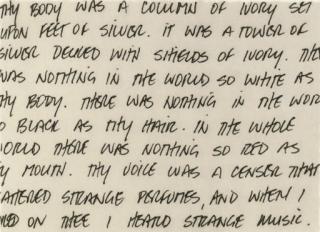 THY BODY WAS A COLUMN OF IVORY SET
UPON FEET OF SILVER. IT WAS A TOWER OF
SILVER DECKED WITH SHIELDS OF IVORY. THE
WAS NOTHING IN THE WORLD SO WHITE AS
THY BODY. THERE WAS NOTHING IN THE WOR
O BLACK AS THY HAIR. IN THE WHOLE
WORLD THERE WAS NOTHING SO RED AS
Y MOUTH. THY VOICE WAS A CENSER THAT
CATTERED STRANGE PERFUMES, AND WHEN I
KED ON THEE I HEARD STRANGE MUSIC.